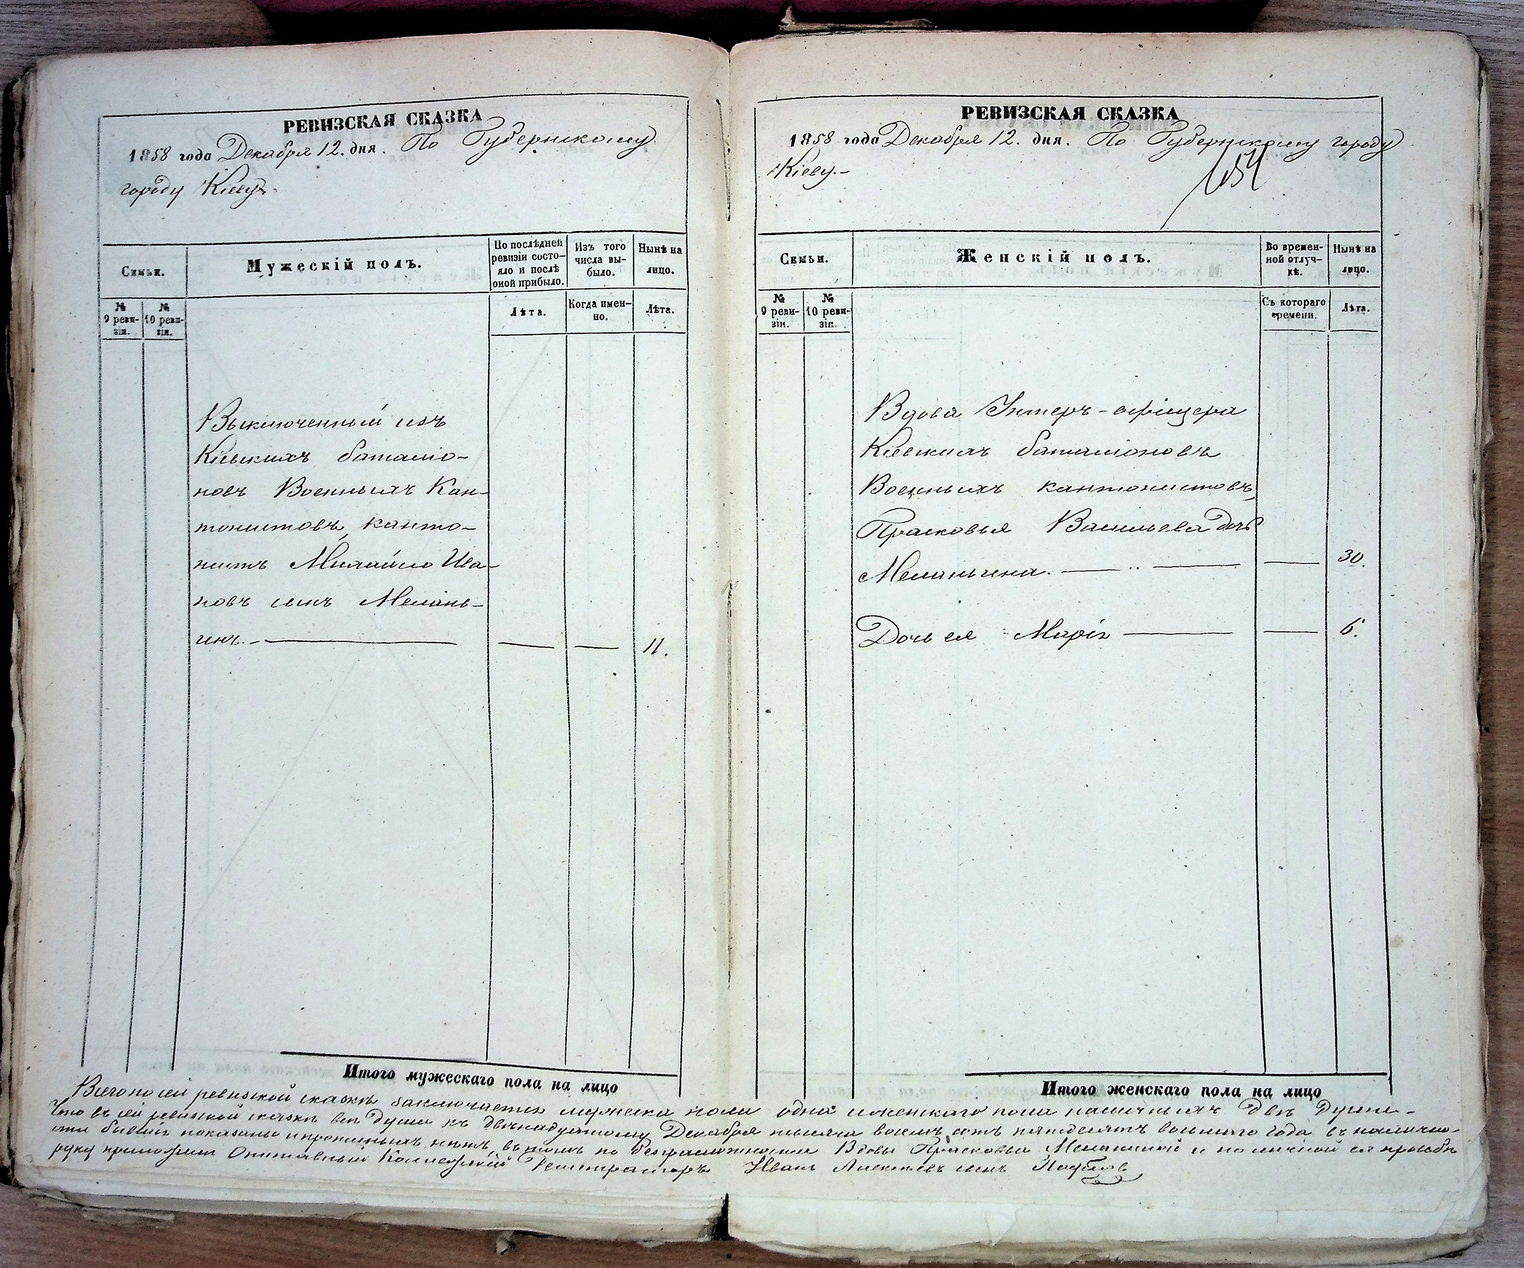 РЕВИЗСКАЯ СКАЗКА
1858 года Декабря 12. дня. По Губернскому
городу Кіеву.
Семьи.
Мужескій полъ.
По послѣдней ревизіи состояло и послѣ оной прибыло.
Изъ того числа выбыло.
Нынѣ на лицо.
№ 9 ревизіи.
№ 10 ревизіи.
Лѣта.
Когда именно.
Лѣта.
Выключенный изъ
Кіевскихъ баталіо-
новъ Военныхъ Кан-
тонистовъ, канто-
нистъ Михайло Ива-
новъ сынъ Мелань-
инъ. 11.
Итого мужескаго пола на лицо
РЕВИЗСКАЯ СКАЗКА
1858 года Декабря 12. дня. По Губернскому городу
Кіеву.
654
Семьи.
Женскій полъ.
Во временной отлучкѣ.
Нынѣ на лицо.
№ 9 ревизіи.
№ 10 ревизіи.
Съ котораго времени.
Лѣта.
Вдова Унтеръ-офицера
Кіевскихъ баталіоновъ
Военныхъ кантонистовъ,
Прасковья Васильева дочь
Меланьина. 30.
Дочь ея Марія 6.
Итого женскаго пола на лицо
Всего по сей ревизской сказкѣ заключается мужеска пола одна и женскаго пола наличныхъ двѣ души.
Что въ сей ревизской сказкѣ всѣ души къ двѣнадцатому Декабря тысяча восемь сотъ пятдесятъ восьмого года въ налично-
сти бывшія показаны и прописныхъ нѣтъ, въ томъ по безграмотности Вдовы Прасковьи Меланьиной и по личной ея прозьбѣ
руку приложилъ Коллежскій Регистраторъ Иванъ сынъ